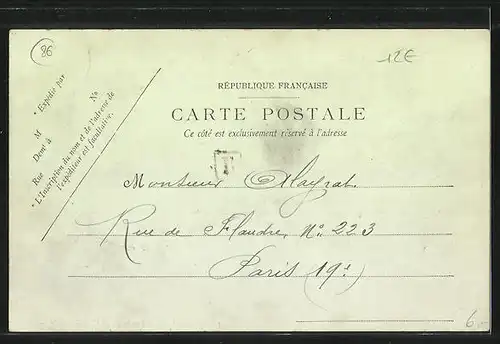 86
12€
* Expédié par
M
Demt à
Rue No
* L'Inscription du nom et de l'adresse de
l'expéditeur est facultative.
RÉPUBLIQUE FRANÇAISE
CARTE POSTALE
Ce côté est exclusivement réservé à l'adresse
T
Monsieur Mayrat.
Rue de Flandre, No 223
Paris (19e)
6.-